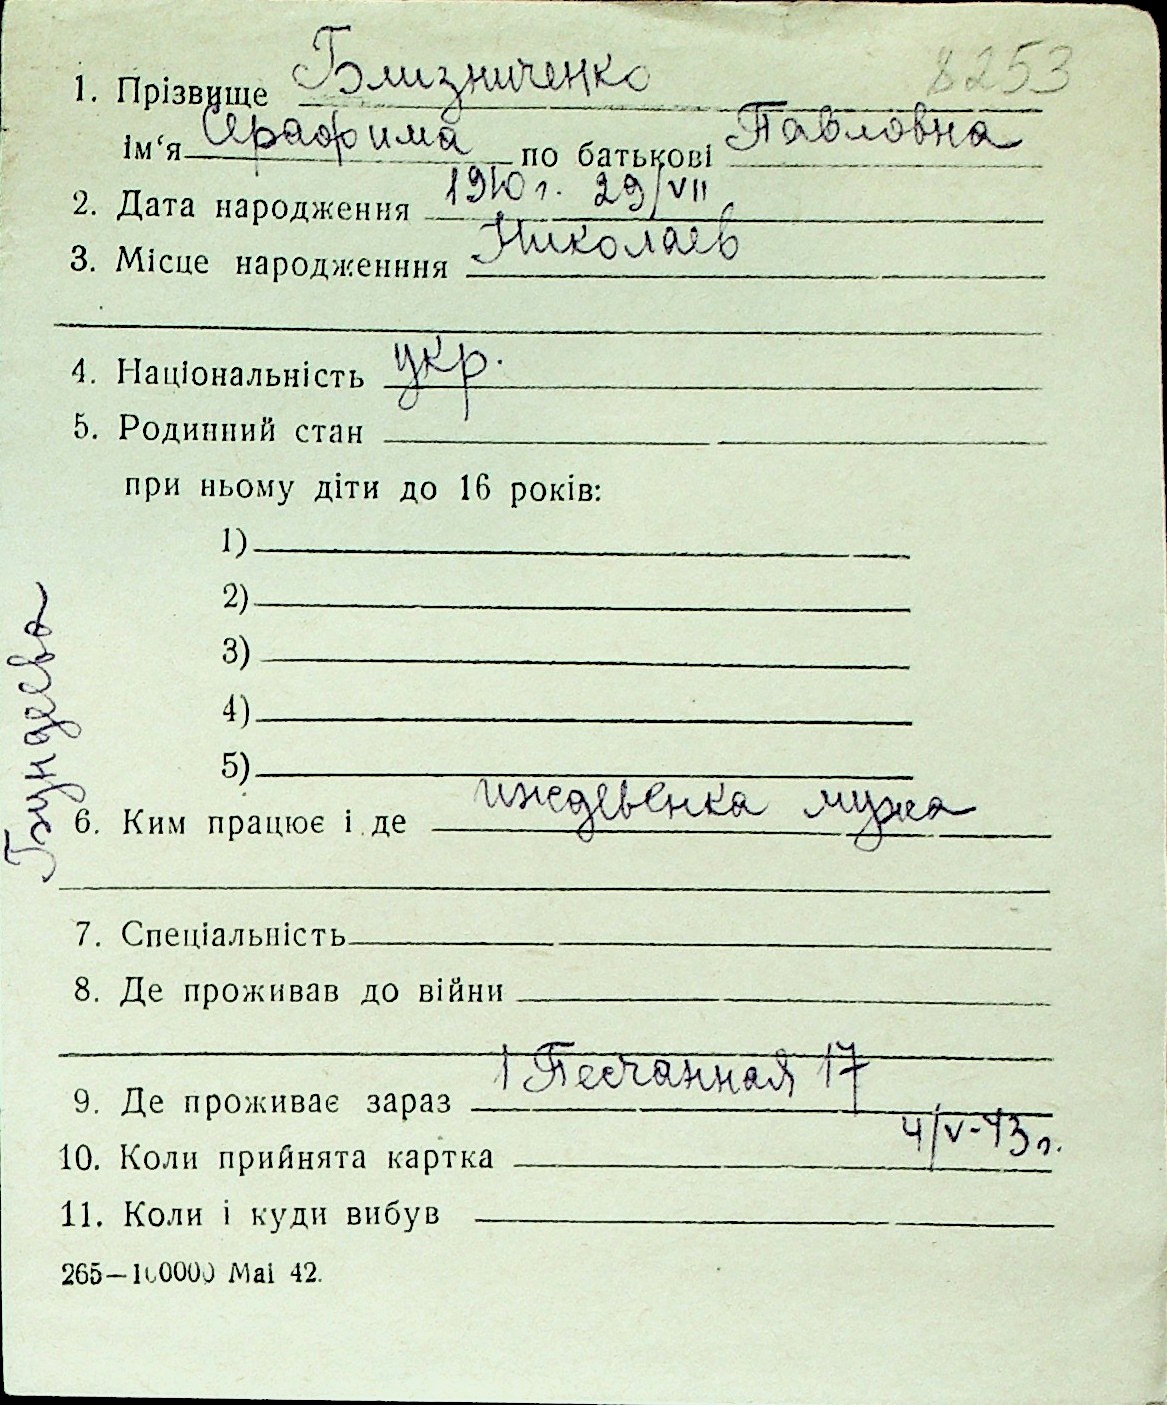 8253
1. Прізвище Близниченко
ім‘я Серафима по батькові Павловна
2. Дата народження 1910 г. 29/VII
3. Місце народженння Николаев
4. Національність укр.
5. Родинний стан
при ньому діти до 16 років:
1)
2)
3)
4)
5)
Бундеева
6. Ким працює і де иждевенка мужа
7. Спеціальність
8. Де проживав до війни
9. Де проживає зараз 1 Песчанная 17
10. Коли прийнята картка 4/V-43 г.
11. Коли і куди вибув
265—100000 Mai 42.